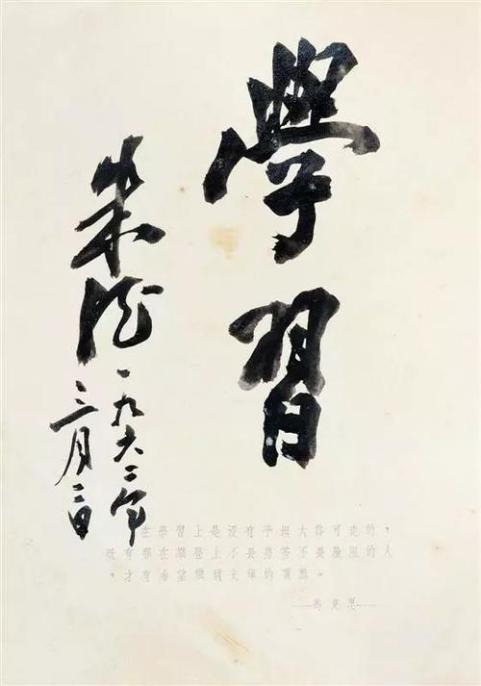 學習
朱德
一九六二年
三月二日
在學習上是沒有平坦大路可走的，
有在攀登上不畏勞苦不畏險阻的人
，才有希望達到光輝的頂點。
——馬克思——